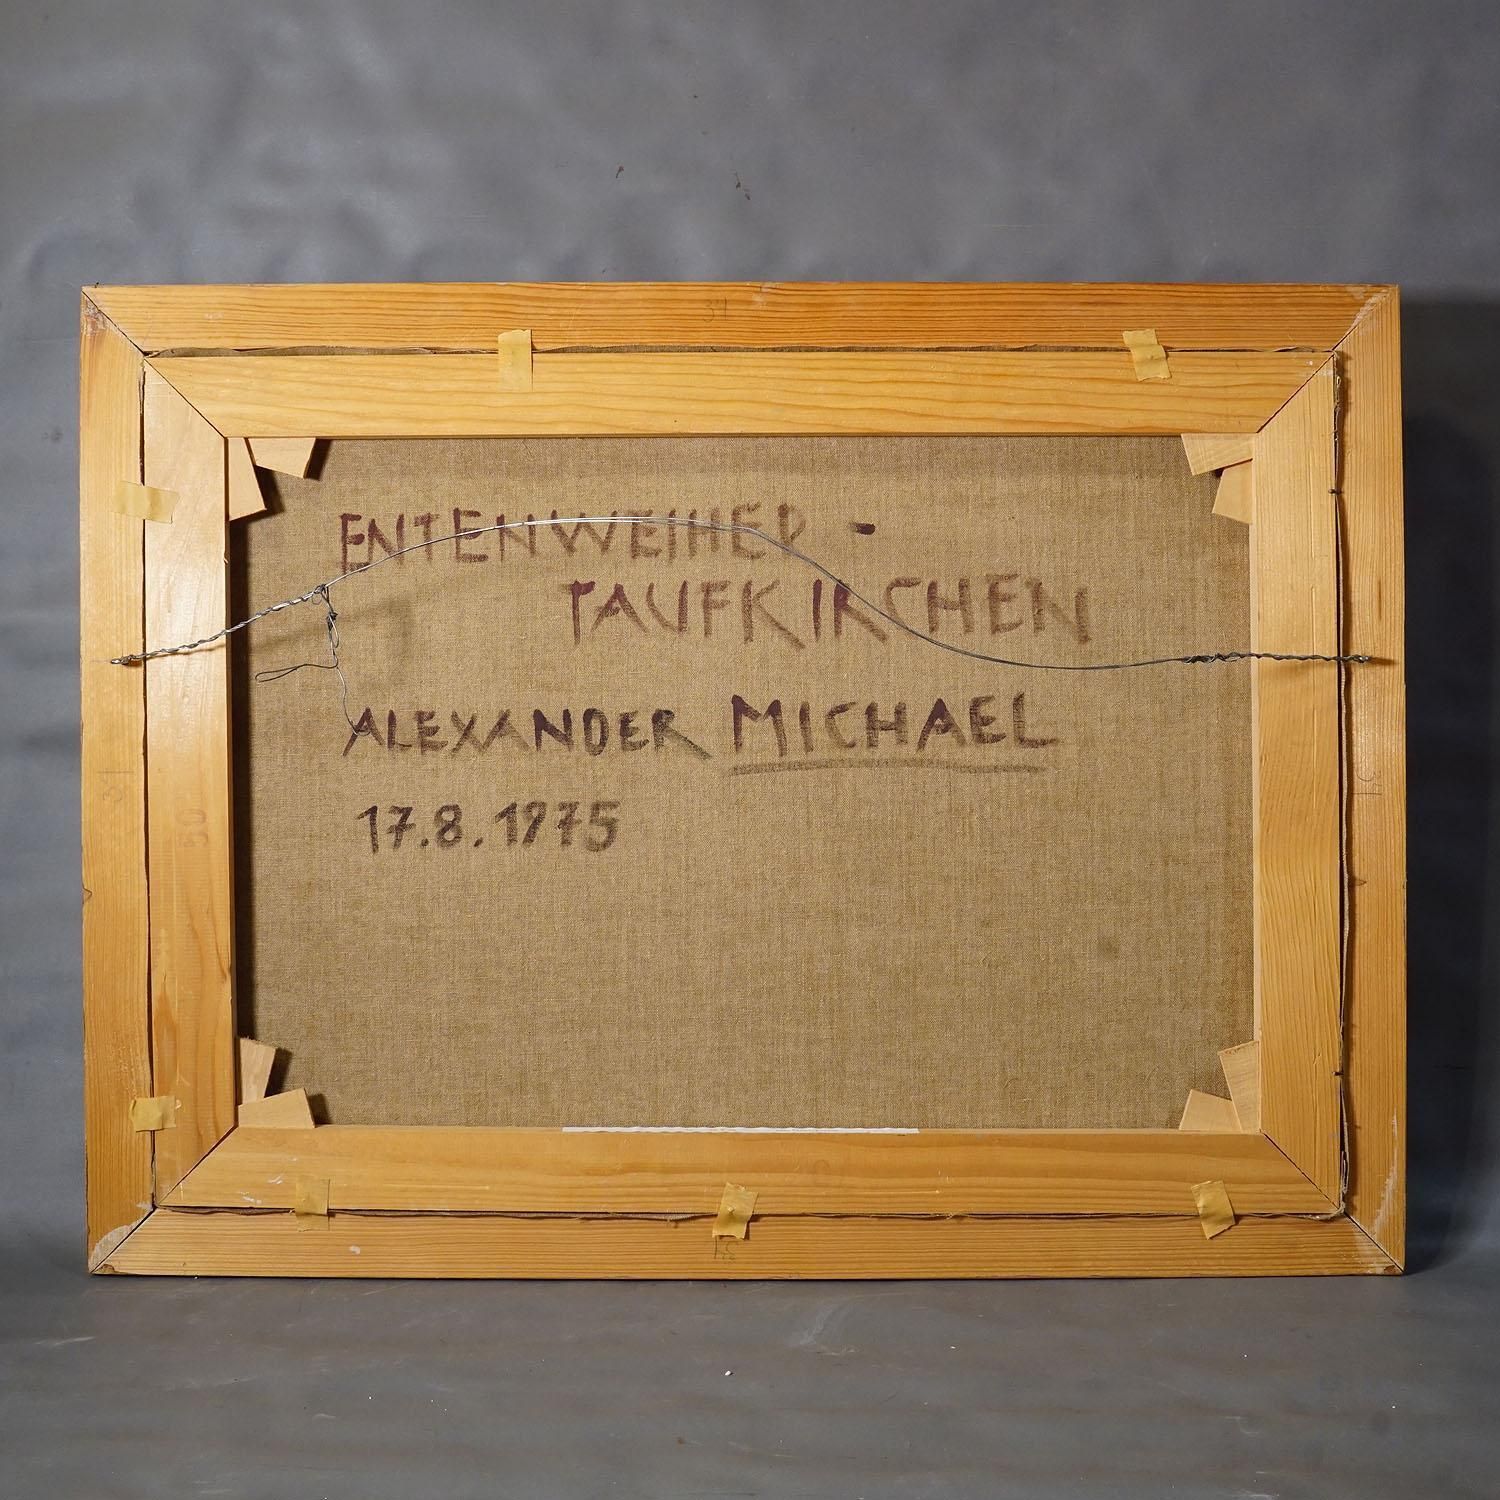 34
ENTENWEIHER -
TAUFKIRCHEN
ALEXANDER MICHAEL
17.8.1975
31
50